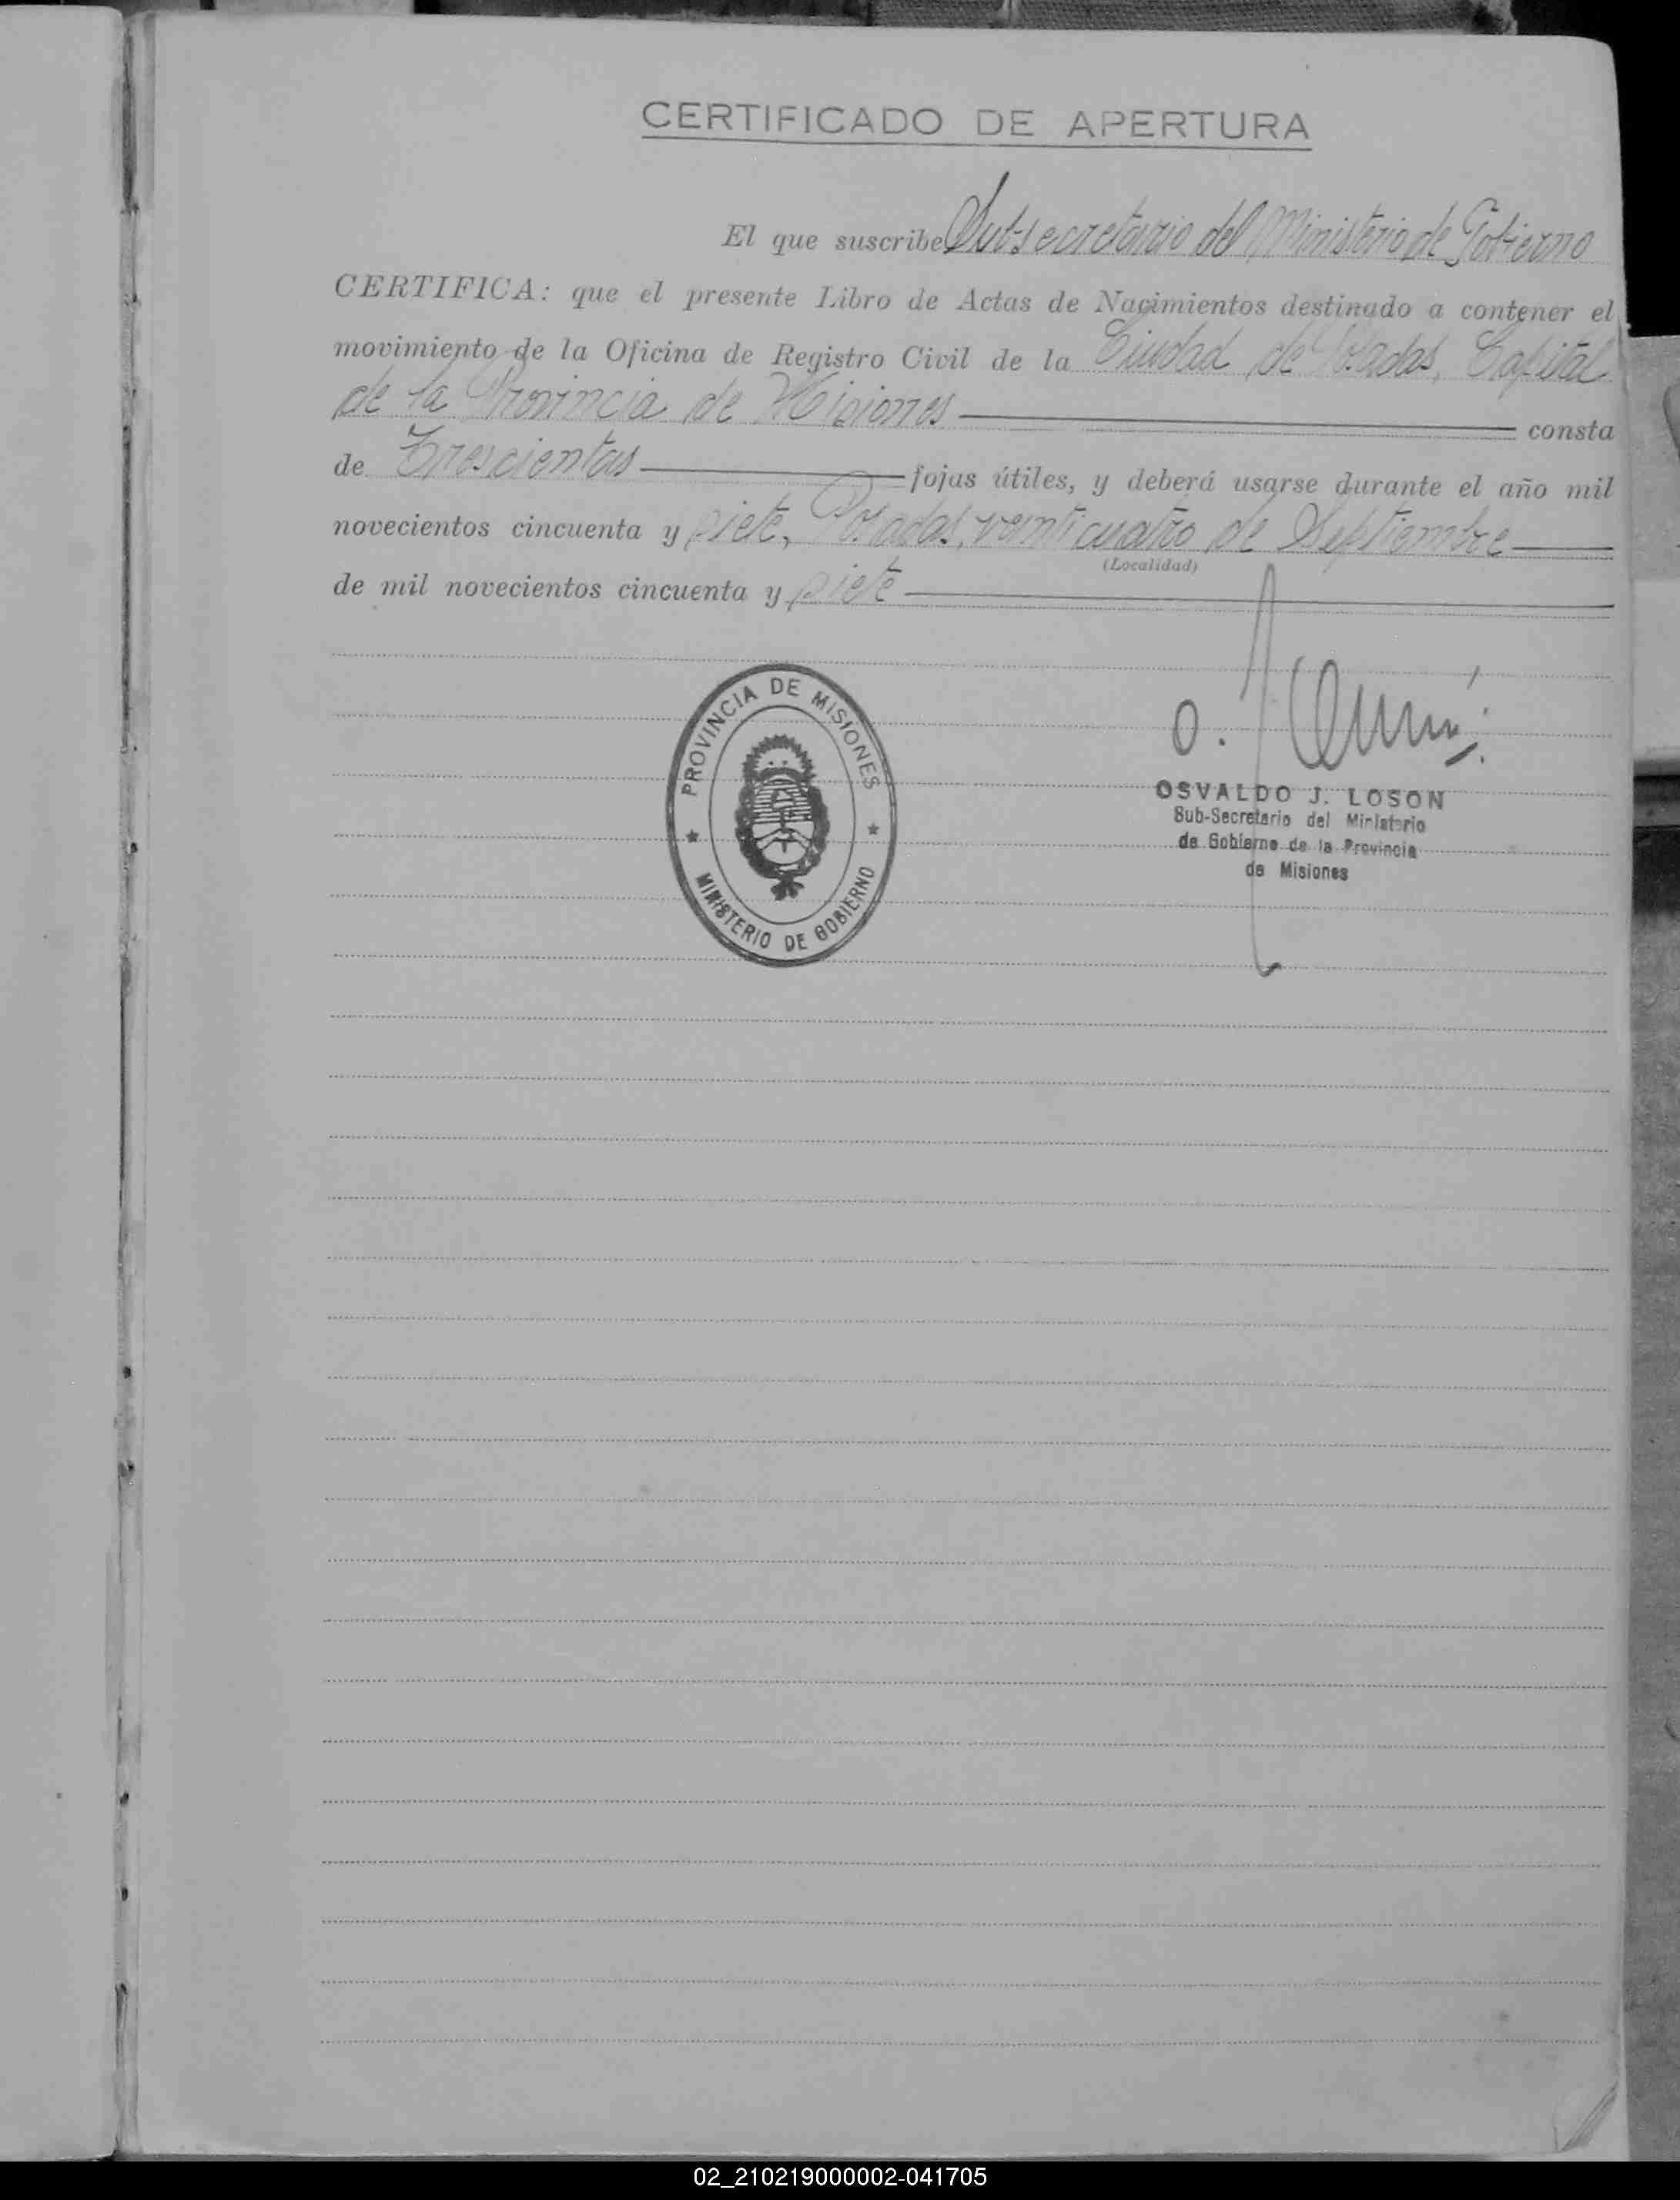 CERTIFICADO DE APERTURA
El que suscribe Sub-secretario del Ministerio de Gobierno
CERTIFICA: que el presente Libro de Actas de Nacimientos destinado a contener el
movimiento de la Oficina de Registro Civil de la Ciudad de Posadas, Capital
de la Provincia de Misiones consta
de Trescientas fojas útiles, y deberá usarse durante el año mil
novecientos cincuenta y siete, Posadas, veinticuatro de Septiembre
(Localidad)
de mil novecientos cincuenta y siete
PROVINCIA DE MISIONES
MINISTERIO DE GOBIERNO
OSVALDO J. LOSON
Sub-Secretario del Ministerio
de Gobierno de la Provincia
de Misiones
02_210219000002-041705